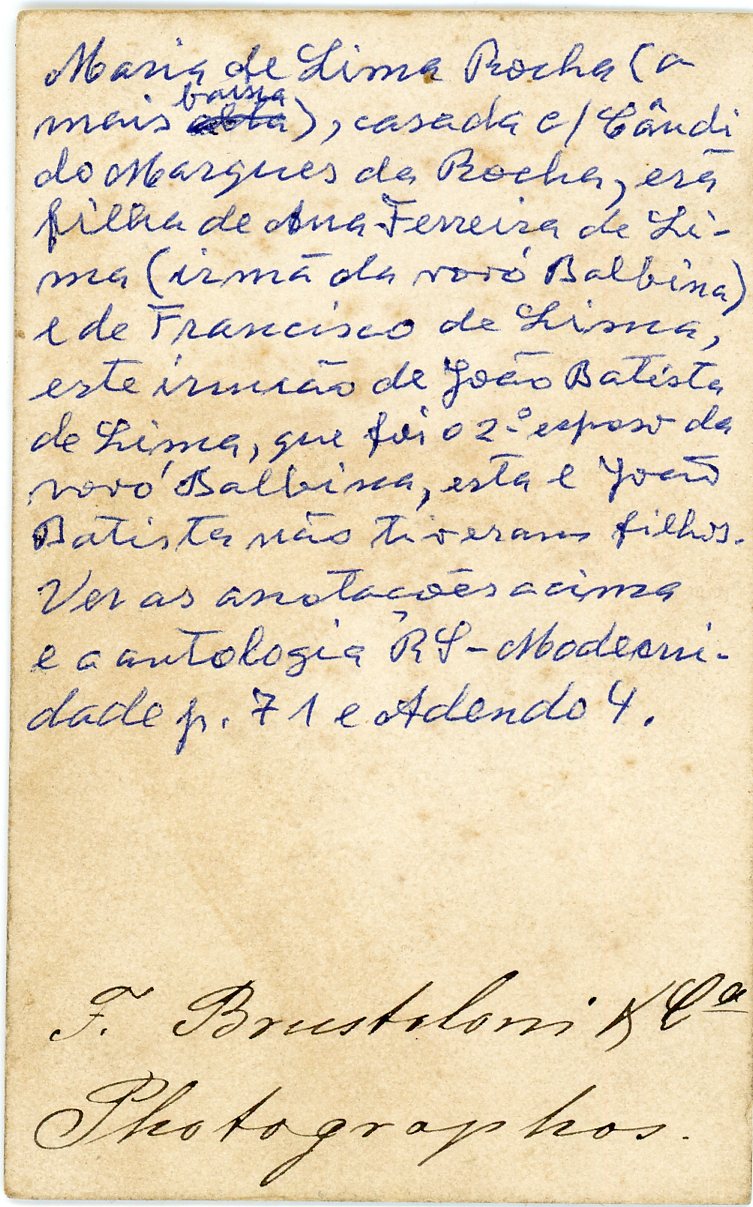 Maria de Lima Rocha (a
mais baixa alta), casada c/ Cândi
do Marques da Rocha, era
filha de Ana Ferreira de Li-
ma (irmã da vovó Balbina)
e de Francisco de Lima,
este irmão de João Batista
de Lima, que foi o 2º esposo da
vovó Balbina, esta e João
Batista não tiveram filhos.
Ver as anotações acima
e a antologia "RS-Moderni-
dade p. 71 e Adendo 4.
F. Brustoloni & Cª
Photographos.